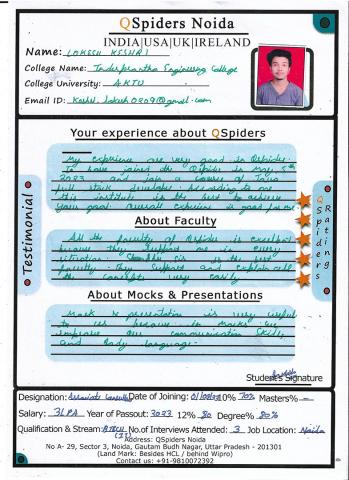 QSpiders Noida
INDIA|USA|UK|IRELAND
Name: LOKESH KESHRI
College Name: Inderprastha Engineering College
College University: AKTU
Email ID:
Your experience about QSpiders
My experience are very good in QSpiders.
To have joined the QSpider in May, 5th
2023 and join a course of Java
full stack developer. According to me
this institute is the best to achieve
your goal. Overall experience is good for me
About Faculty
All the faculty of QSpider is excellent
because they support me in every
situation. sir is the best
faculty. They support and explain all
the concepts very easily
About Mocks & Presentations
Mock & presentation is very useful
to us because in mocks we
improve our communication skills
and body language.
Testimonial
QSpiders
Ratings
Student's Signature
Designation: Associate Consultant Date of Joining: 10% 70% Masters% -
Salary: 3LPA Year of Passout: 2023 12% 80 Degree% 80%
Qualification & Stream: BTECH No.of Interviews Attended: 3 Job Location: Noida
(IT)
Address: QSpiders Noida
No A- 29, Sector 3, Noida, Gautam Budh Nagar, Uttar Pradesh - 201301
(Land Mark: Besides HCL / behind Wipro)
Contact us: +91-9810072392